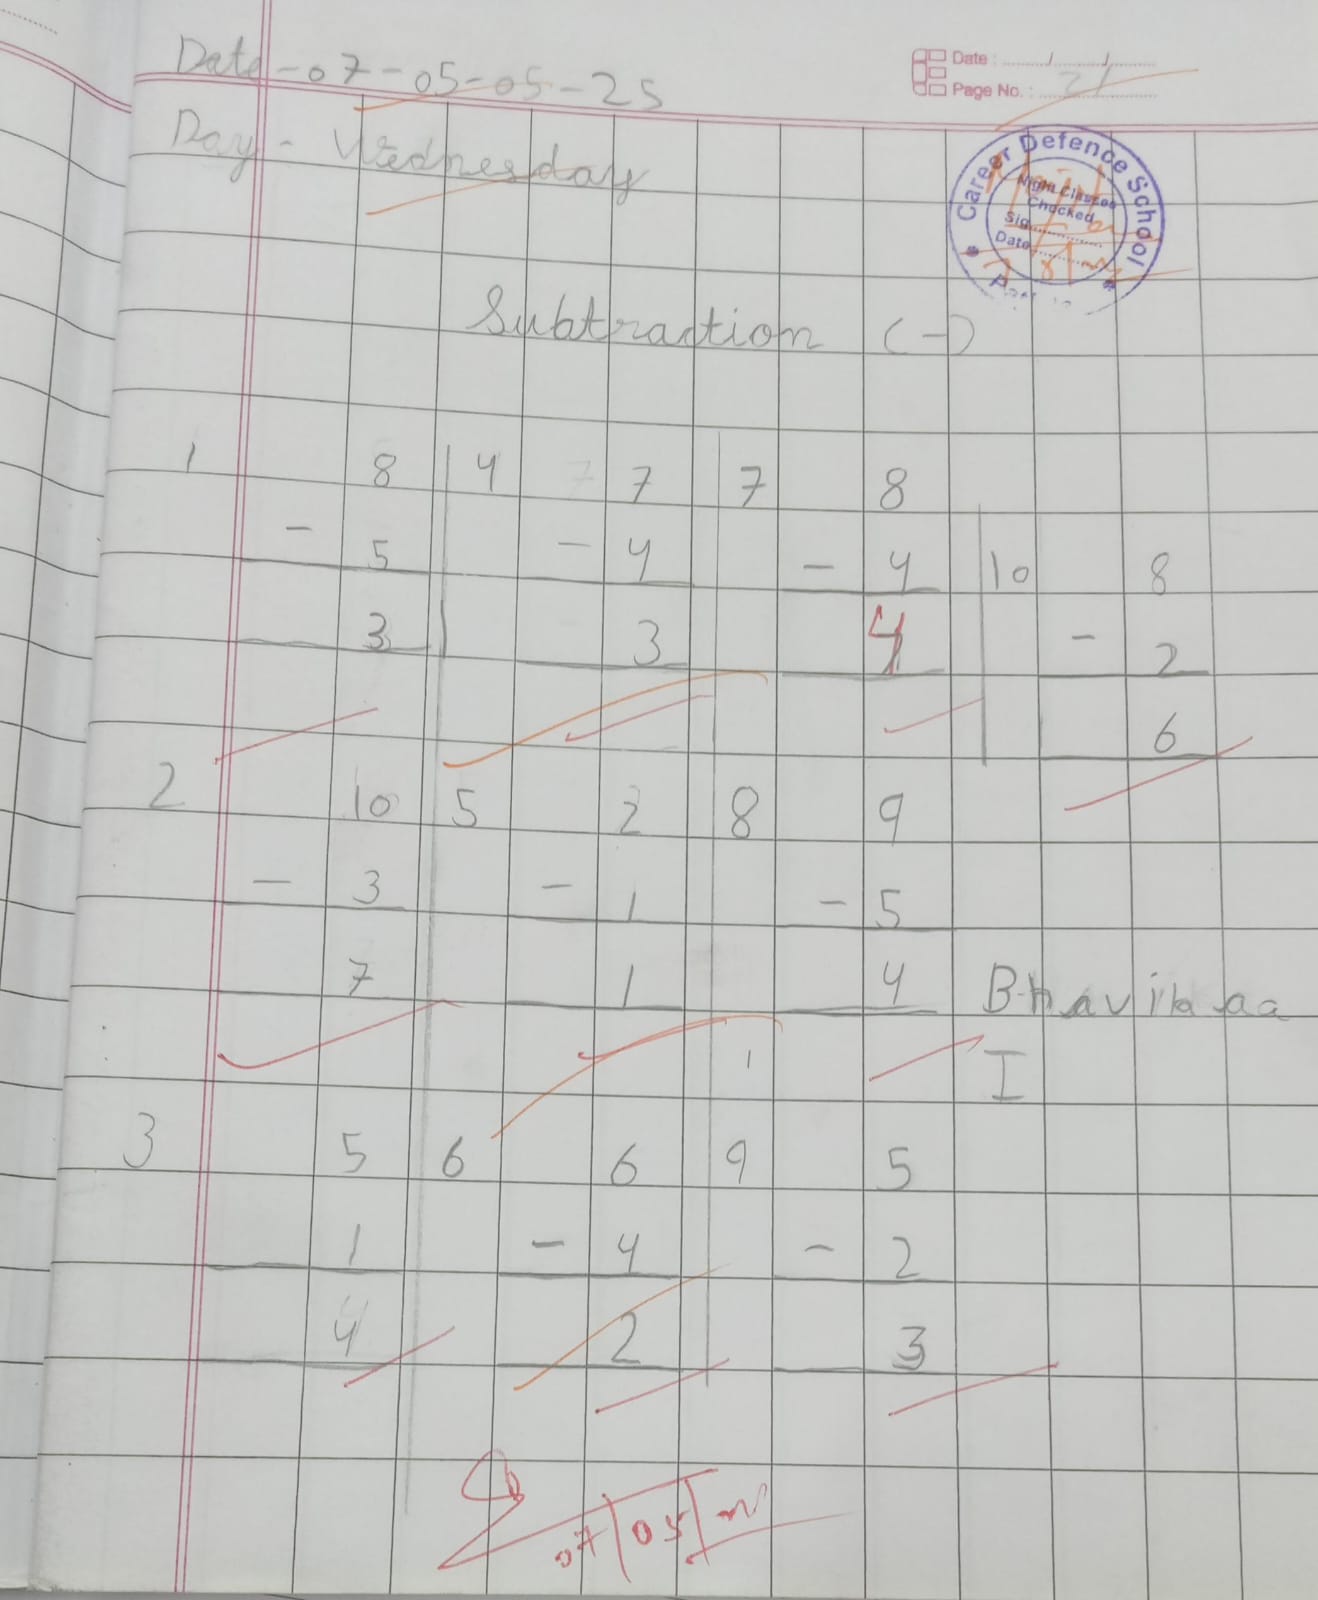 Date-07-05-05-25
Date : ....../....../......
Page No. : 21
Day - Wednesday
Career Defence School
Night Classes
Checked
Sig
Date
Subtraction (-)
1 8 4 7 7 8
- 5 - 4 - 4 10 8
3 3 4 - 2
6
2 10 5 2 8 9
- 3 - 1 - 5
7 1 4 Bhavikaa
1 I
3 5 6 6 9 5
1 - 4 - 2
4 2 3
07/05/